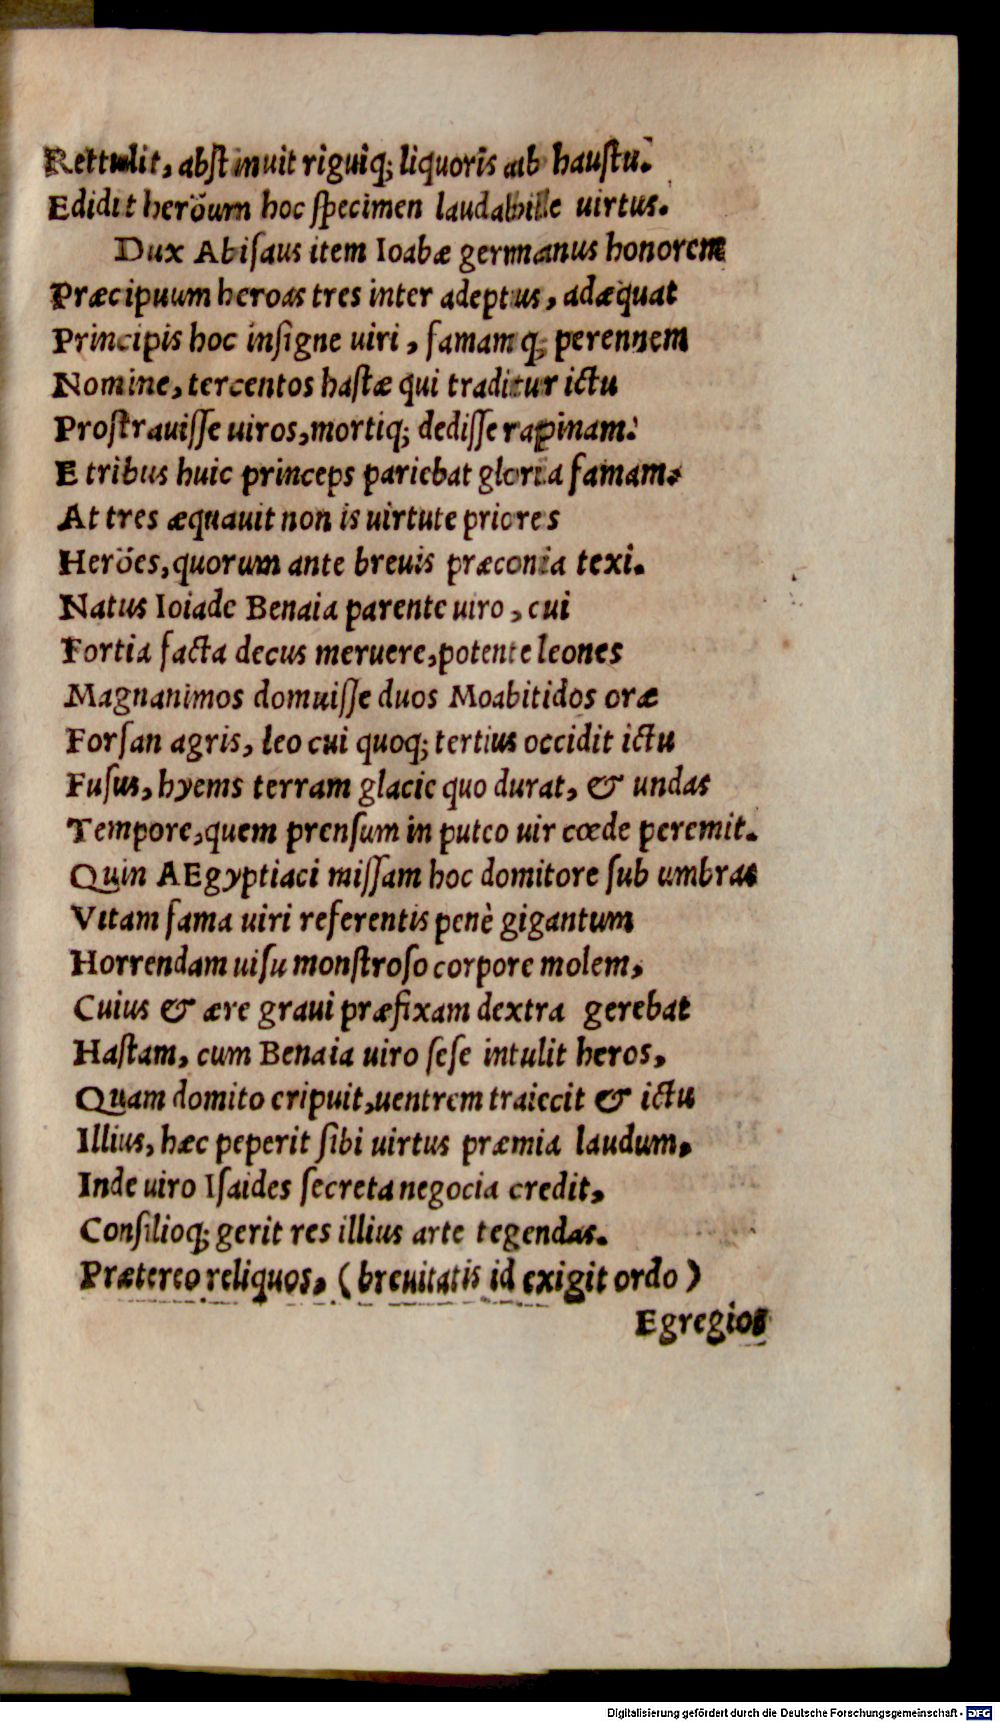 Rettulit, abstinuit riguiq; liquoris ab haustu.
Edidit heröum hoc specimen laudabile uirtus.
Dux Abisaus item Ioabæ germanus honorem
Præcipuum heroas tres inter adeptus, adæquat
Principis hoc insigne uiri, famamq; perennem
Nomine, tercentos hastæ qui traditur ictu
Prostrauisse uiros, mortiq; dedisse rapinam.
E tribus huic princeps pariebat gloria famam,
At tres æquauit non is uirtute priores
Heröes, quorum ante breuis præconia texi.
Natus Ioiade Benaia parente uiro, cui
Fortia facta decus meruere, potente leones
Magnanimos domuisse duos Moabitidos oræ
Forsan agris, leo cui quoq; tertius occidit ictu
Fusus, hyems terram glacie quo durat, & undas
Tempore, quem prensum in puteo uir cœde peremit.
Quin AEgyptiaci missam hoc domitore sub umbras
Vitam fama uiri referentis penè gigantum
Horrendam uisu monstroso corpore molem,
Cuius & ære graui præfixam dextra gerebat
Hastam, cum Benaia uiro sese intulit heros,
Quam domito eripuit, uentrem traiecit & ictu
Illius, hæc peperit sibi uirtus præmia laudum,
Inde uiro Isaides secreta negocia credit,
Consilioq; gerit res illius arte tegendas.
Prætereo reliquos, (breuitatis id exigit ordo)
Egregios
Digitalisierung gefördert durch die Deutsche Forschungsgemeinschaft - DFG